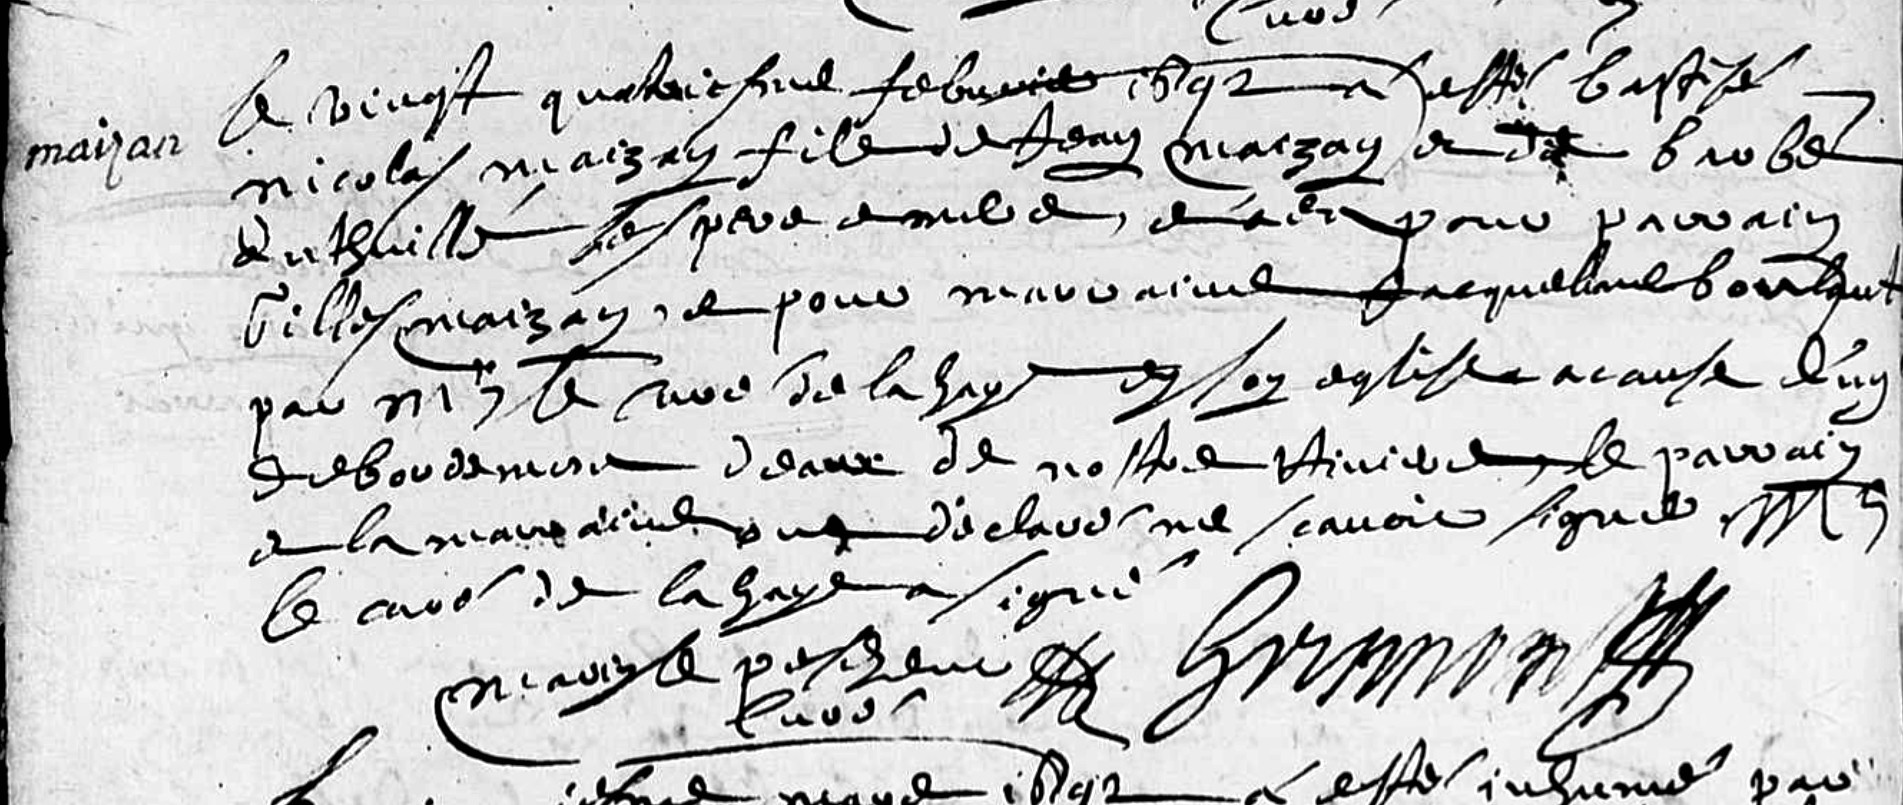 Curé
maizan
le vingt quatriesme febvrier 1692 a esté baptisé
nicolas maizan fils de Jean maizan et de barbe
duthuillé ses pere e mere, e a eu pour parrain
Gilles maizan, e pour marraine Jacqueline
par Mr le curé de la haye en son eglise a cause d'un
debordement d'eaux de nostre riviere, le parrain
e la marraine ont declaré ne scavoir signer Mr
le curé de la haye a signé
le pescheur
Curé
mars 1692 a esté inhumé par